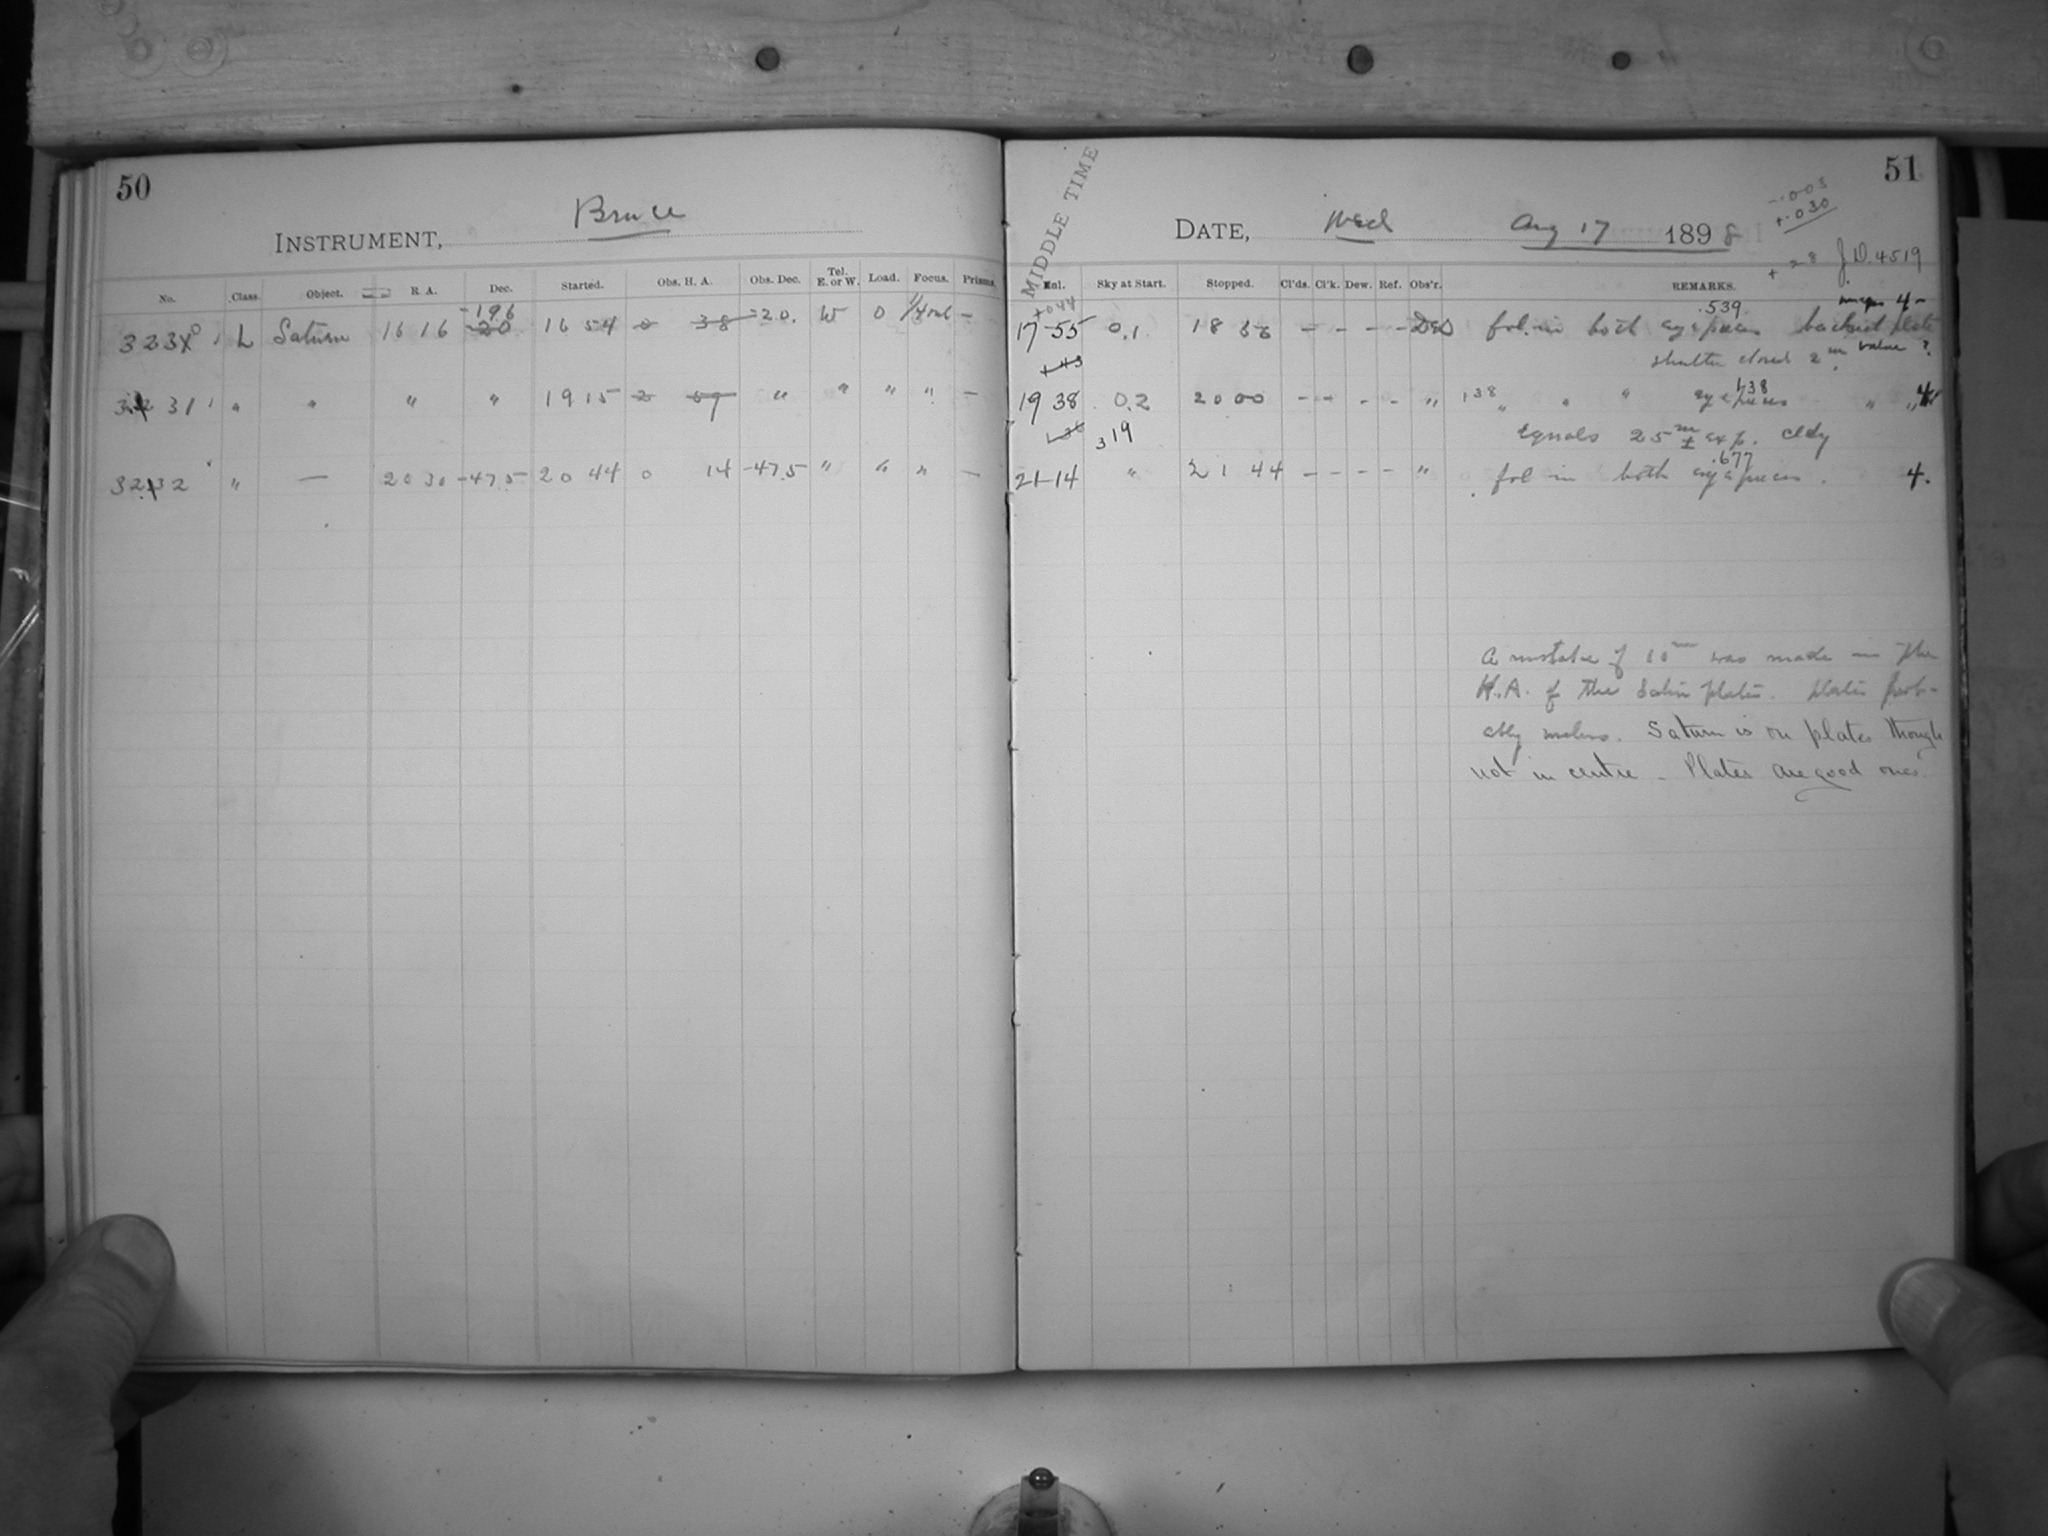 50
INSTRUMENT, Bruce
No. Class. Object. R. A. Dec. Started. Obs. H. A. Obs. Dec. Tel. E. or W. Load. Focus. Prisms.
-19.6
3230 L Saturn 16 16 -20 16 54 0 38 -20. W 0 -
3231 " " " " 19 15 2 59 " " " " -
3232 " — 20 30 -47.5 20 44 0 14 -47.5 " " " -
51
MIDDLE TIME
DATE, Wed Aug 17 1898
-.003
+.030
+28 J.D. 4519
Enl. Sky at Start. Stopped. Cl'ds. Cl'k. Dew. Ref. Obs'r. REMARKS.
+044 .539 images 4-
17-55 0.1 18 56 - - - - fol. in both eyepieces backed plate
+43 shutter closed 2m value?
19 38 0.2 20 00 - - - - " 138 " " " eyepieces 138 " " 4
319 equals 25m ± exp. cldy
.677
21-14 " 21 44 - - - - " fol in both eyepieces. 4.
A mistake of 10m was made in the
H.A. of the Saturn plates. plates prob-
ably useless. Saturn is on plates though
not in centre - Plates are good ones.